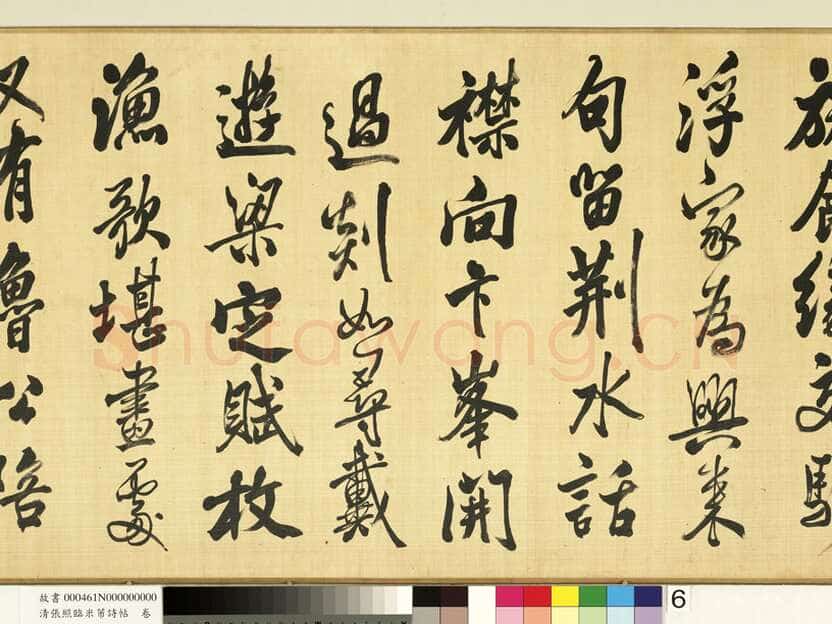 旅食緣交駐
浮家為興來
句留荊水話
襟向卞峯開
過剡如尋戴
遊梁定賦枚
漁歌堪畫處
又有魯公陪
Shufawang.CN
故書 000461N000000000
清張照臨米芾詩帖 卷
6